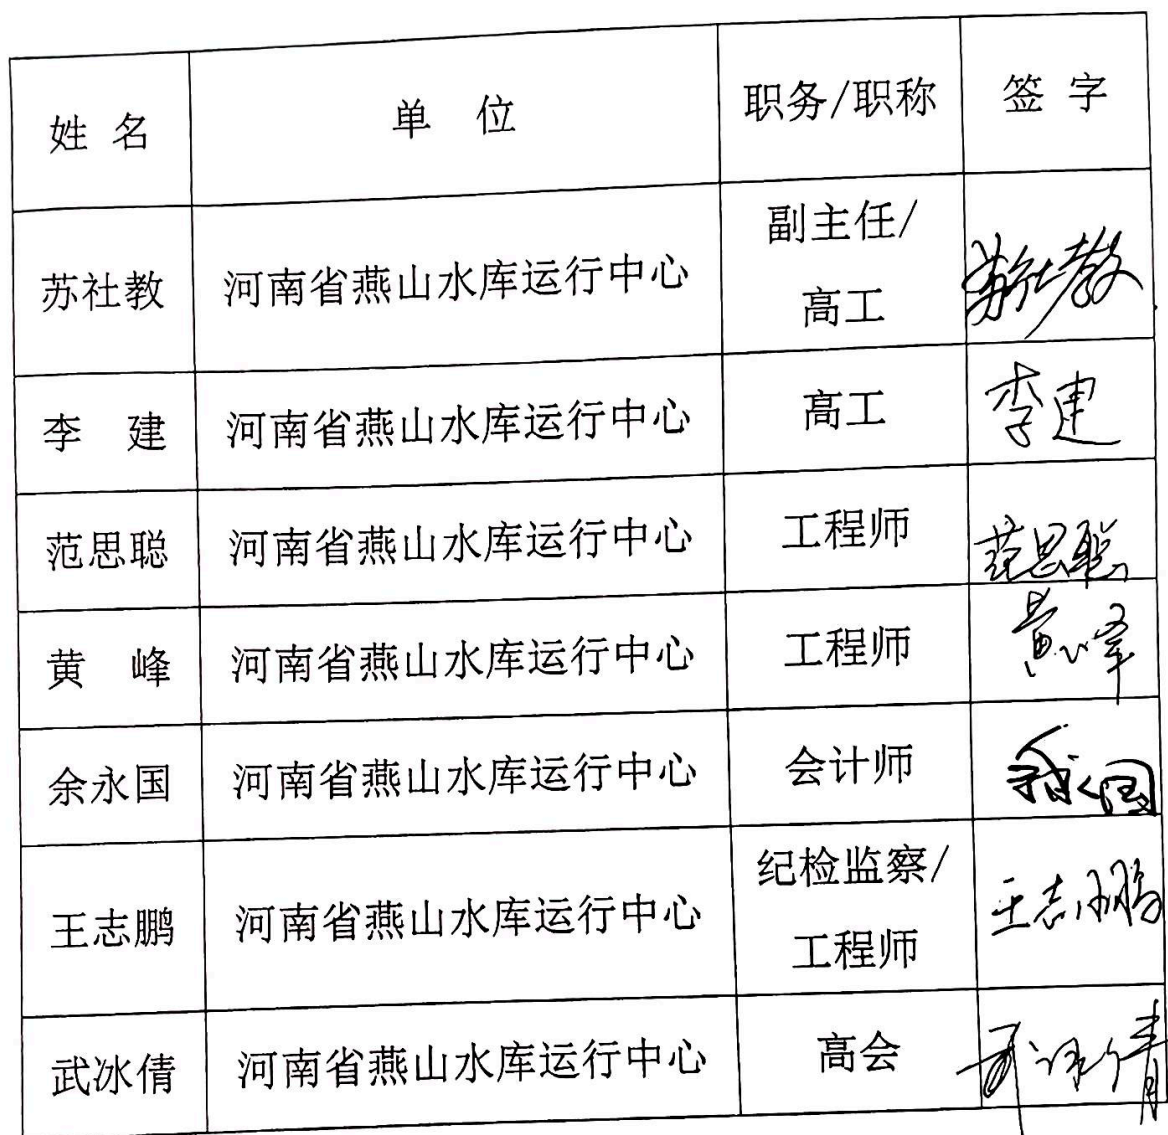 姓 名 单 位 职务/职称 签 字
苏社教 河南省燕山水库运行中心 副主任/
高工 苏社教
李 建 河南省燕山水库运行中心 高工 李建
范思聪 河南省燕山水库运行中心 工程师 范思聪
黄 峰 河南省燕山水库运行中心 工程师 黄峰
余永国 河南省燕山水库运行中心 会计师 余永国
王志鹏 河南省燕山水库运行中心 纪检监察/
工程师 王志鹏
武冰倩 河南省燕山水库运行中心 高会 武冰倩